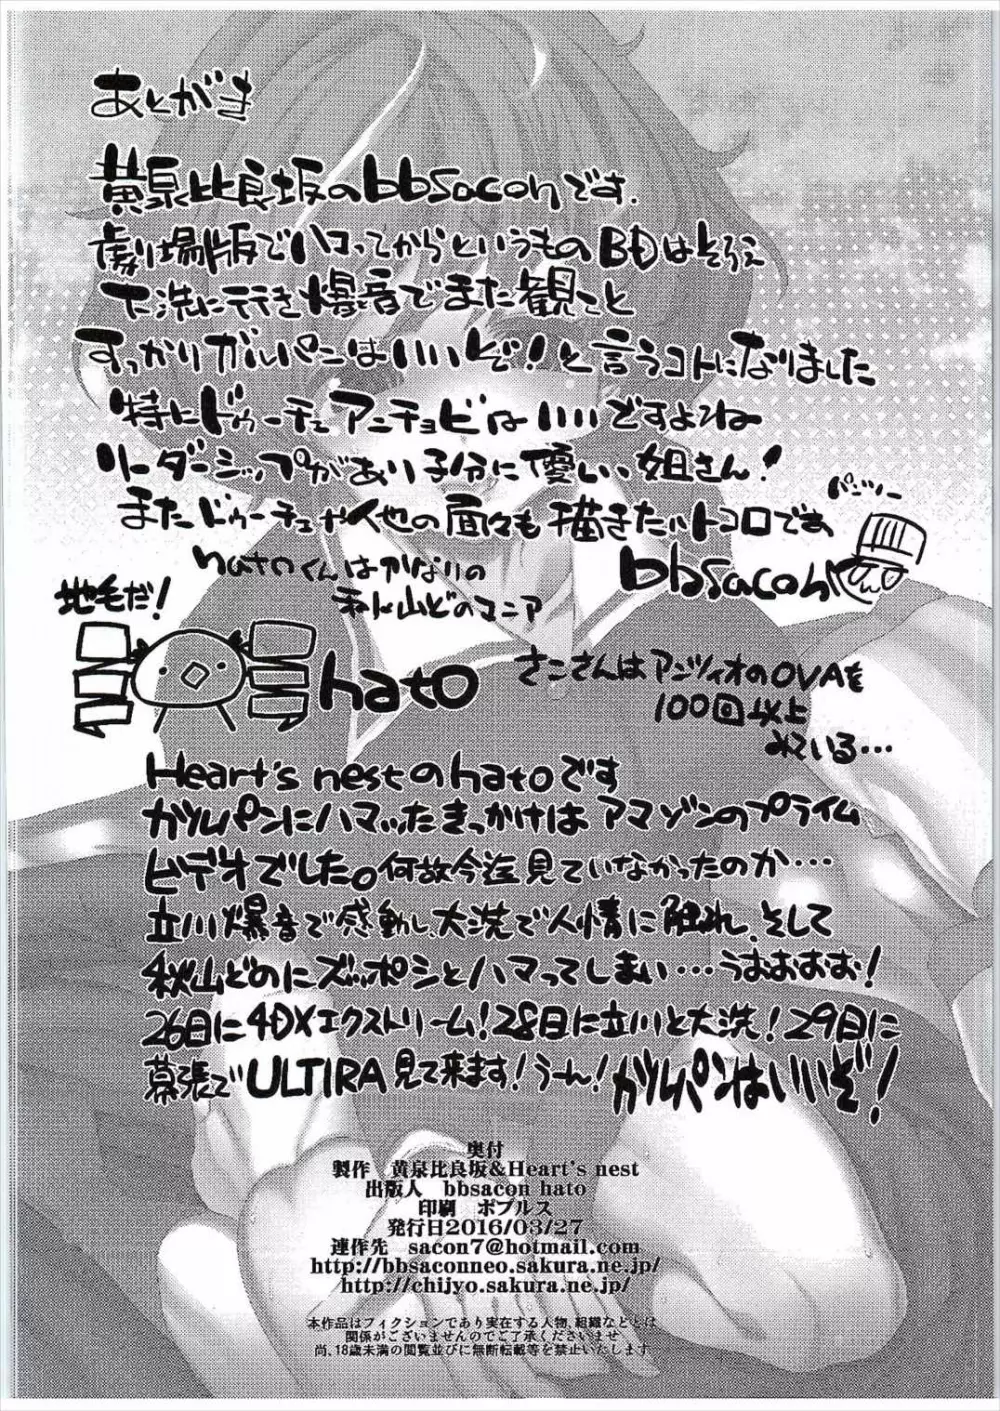 あとがき
黄泉比良坂のbbsaconです.
劇場版でハコってからというものBDはそろえ
大洗に行き爆音でまた観てと
すっかりガルパンはいいぞ!と言うコトになりました
特にドゥーチェアンチョビはいいですよね
リーダーシップがあり子分に優しい姐さん!
またドゥーチェや他の面々も描きたいトコロです
パンツァー
bbsacon
hatoくんはかなりの
秋山どのマニア
地毛だ!
hato
さこさんはアンツィオのOVAを
100回以上
みている…
Heart's nestのhatoです
ガルパンにハマッたきっかけはアマゾンのプライム
ビデオでした。何故今迄見ていなかったのか…
立川爆音で感動し、大洗で人情に触れ、そして
秋山どのにズッポシとハマってしまい…うおおおお!
26日に4DXエクストリーム!28日に立川と大洗!29日に
幕張でULTIRA見て来ます!うーん!ガルパンはいいぞ!
奥付
製作 黄泉比良坂&Heart's nest
出版人 bbsacon hato
印刷 ポプルス
発行日2016/03/27
連作先 sacon7@hotmail.com
http://bbsaconneo.sakura.ne.jp/
http://chijyo.sakura.ne.jp/
本作品はフィクションであり実在する人物、組織などとは
関係がございませんのでご了承くださいませ
尚、18歳未満の閲覧並びに無断転載等を禁止いたします